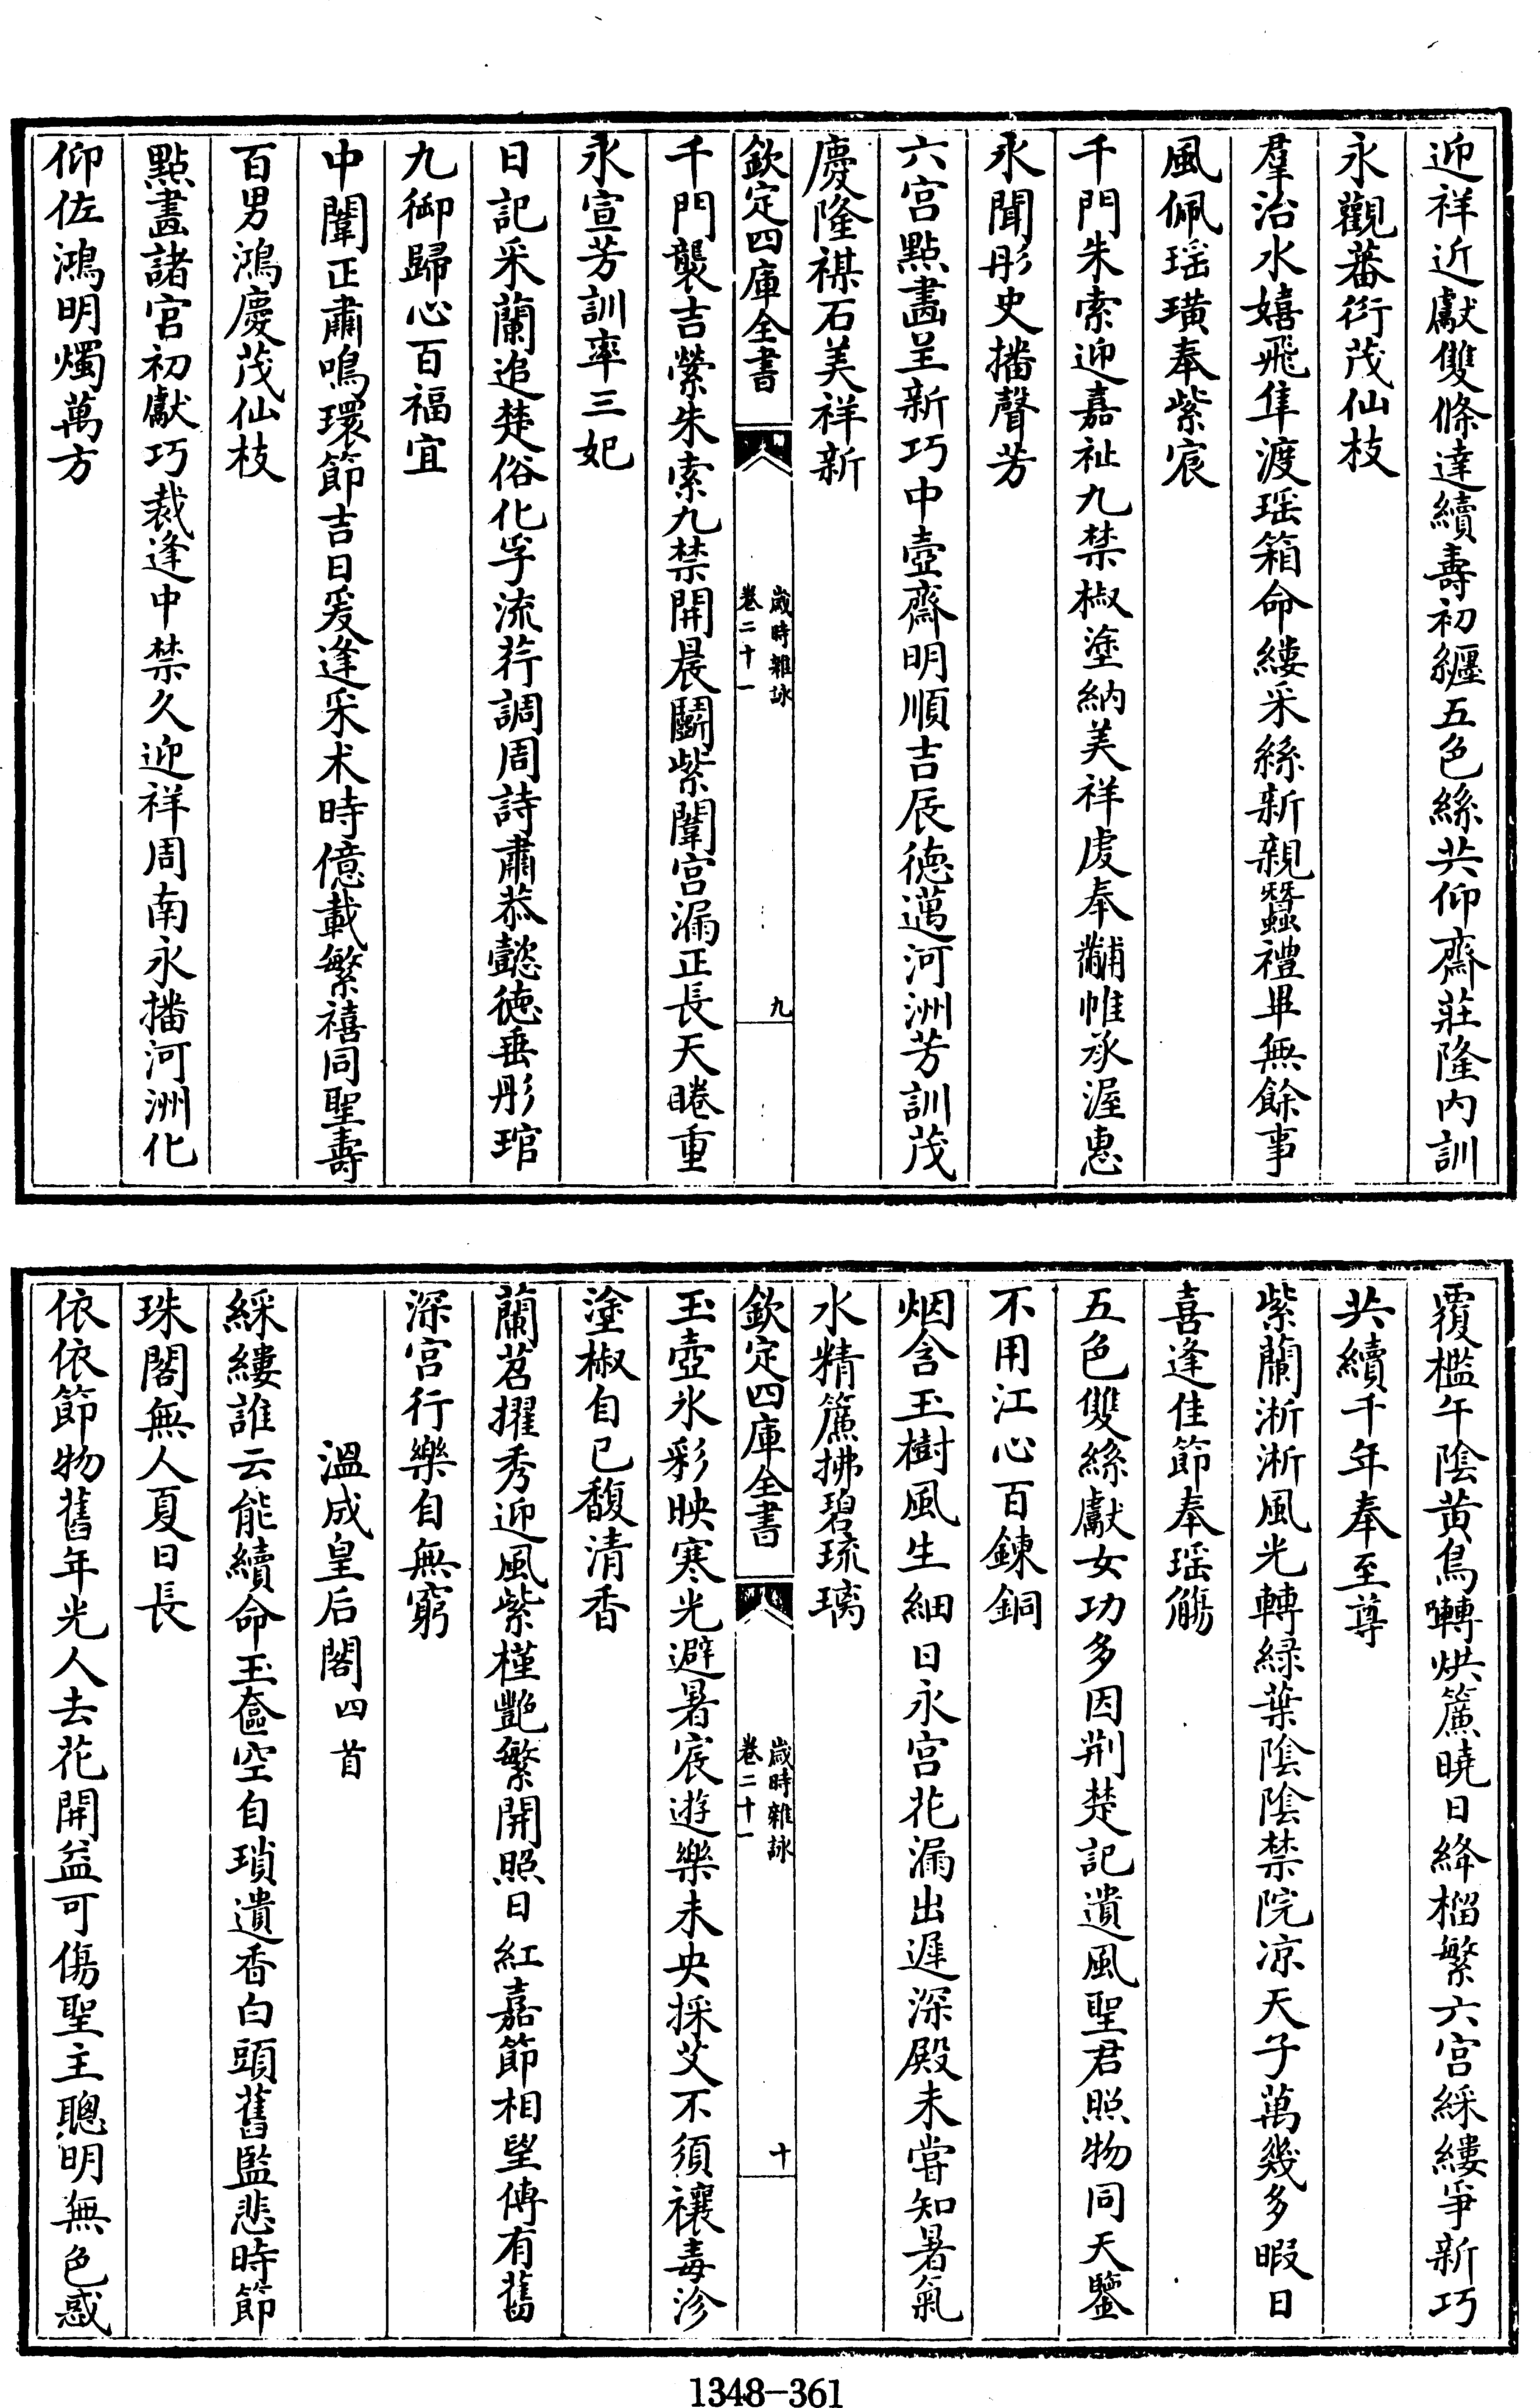 迎祥近獻雙條達續壽初纒五色絲共仰齋莊隆内訓
永觀蕃衍茂仙枝
羣治水嬉飛隼渡瑶箱命縷采絲新親蠶禮畢無餘事
風佩瑶璜奉紫宸
千門朱索迎嘉祉九禁椒塗納美祥虔奉黼帷承渥惠
永聞彤史播聲芳
六宫點畫呈新巧中壼齋明順吉辰徳邁河洲芳訓茂
慶隆禖石美祥新
欽定四庫全書
歲時雜詠
卷二十一
九
千門襲吉縈朱索九禁開晨闢紫闈宫漏正長天睠重
永宣芳訓率三妃
日記采蘭追楚俗化孚流荇調周詩肅恭懿徳垂彤琯
九御歸心百福宜
中闈正肅鳴環節吉日爰逢采术時億載繁禧同聖壽
百男鴻慶茂仙枝
點畫諸宫初獻巧裁逢中禁久迎祥周南永播河洲化
仰佐鴻明燭萬方
覆檻午陰黄鳥囀烘簾曉日絳榴繁六宫綵縷爭新巧
共續千年奉至尊
紫蘭淅淅風光轉緑葉陰陰禁院凉天子萬幾多暇日
喜逢佳節奉瑶觴
五色雙絲獻女功多因荆楚記遺風聖君照物同天鑒
不用江心百鍊銅
烟含玉樹風生細日永宫花漏出遲深殿未嘗知暑氣
水精簾拂碧琉璃
欽定四庫全書
歲時雜詠
卷二十一
十
玉壺氷彩映寒光避暑宸遊樂未央採艾不須禳毒沴
塗椒自已馥清香
蘭茗擢秀迎風紫槿艷繁開照日紅嘉節相望傳有舊
深宫行樂自無窮
温成皇后閣四首
綵縷誰云能續命玉奩空自瑣遺香白頭舊監悲時節
珠閣無人夏日長
依依節物舊年光人去花開益可傷聖主聰明無色惑
1348-361